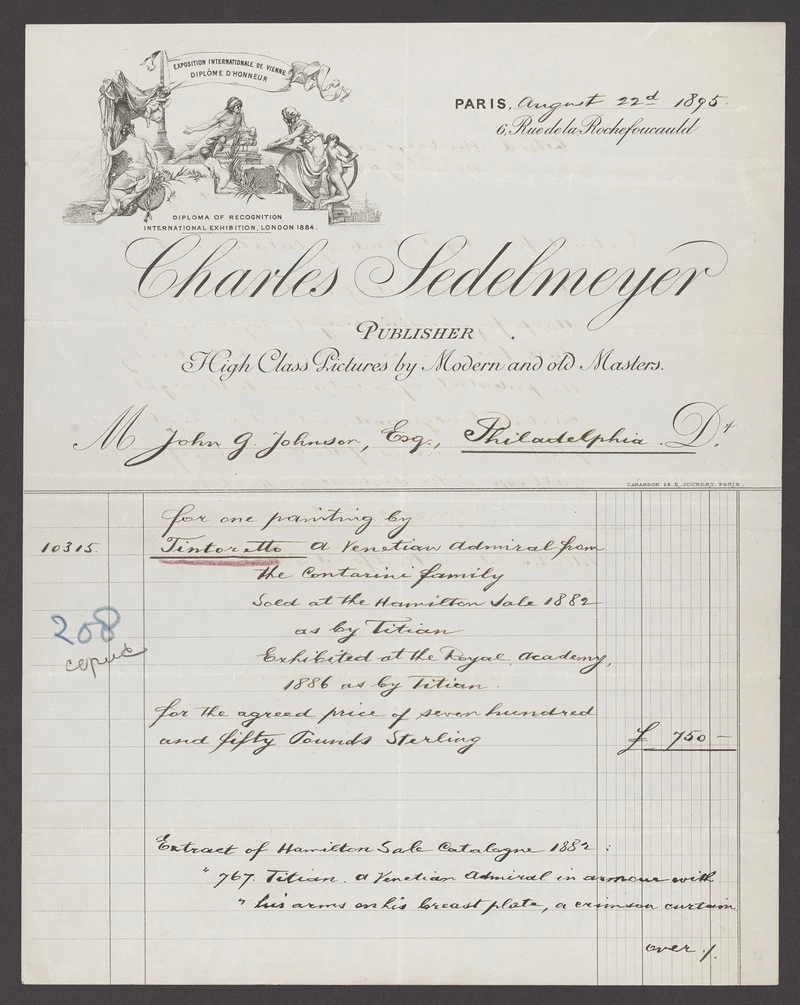 EXPOSITION INTERNATIONALE DE VIENNE
DIPLÔME D'HONNEUR
PARIS, August 22d 1895.
6, Rue de la Rochefoucauld
DIPLOMA OF RECOGNITION
INTERNATIONAL EXHIBITION, LONDON 1884.
Charles Sedelmeyer
PUBLISHER
High Class Pictures by Modern and old Masters.
M John G. Johnson, Esq., Philadelphia. Dr
PARIS.
for one painting by
10315. Tintoretto a Venetian Admiral from
the Contarini family
Sold at the Hamilton Sale 1882
as by Titian
208
Exhibited at the Royal Academy,
1886 as by Titian.
for the agreed price of seven hundred
and fifty Pounds Sterling £ 750 –
Extract of Hamilton Sale Catalogue 1882 :
" 767. Titian. a Venetian Admiral in armour with
" his arms on his breast plate, a crimson curtain
over ./.